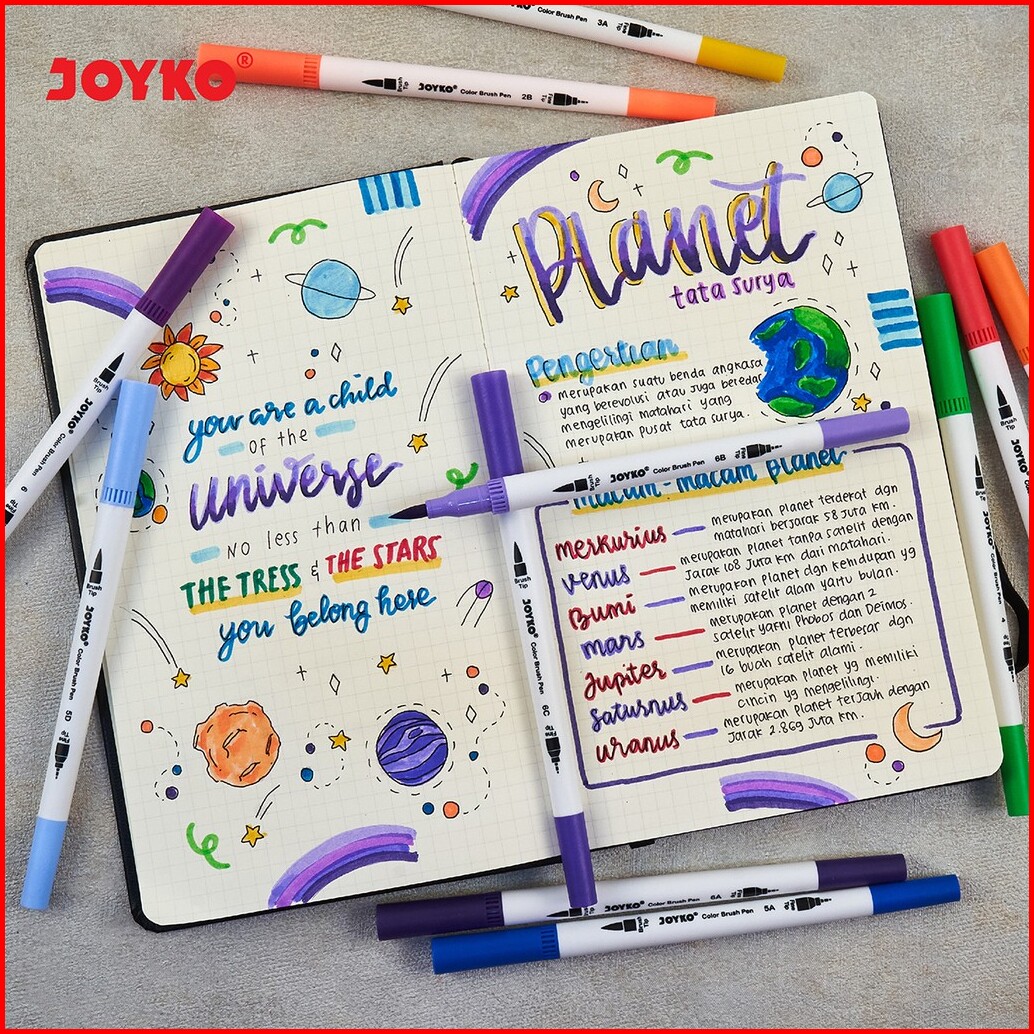 JOYKO®
JOYKO® Color Brush Pen 3A Fine Tip
Brush Tip JOYKO® Color Brush Pen 2B Fine Tip
you are a child
of the
universe
no less than
THE TRESS & THE STARS
you belong here
Planet
tata surya
Pengertian
merupakan suatu benda angkasa
yang berevolusi atau juga beredar
mengelilingi matahari yang
merupakan pusat tata surya.
macam-macam planet
merkurius — merupakan planet terdekat dgn
matahari berjarak 58 juta km.
venus — merupakan planet tanpa satelit dengan
jarak 108 juta km dari matahari.
Bumi — merupakan planet dgn kehidupan yg
memiliki satelit alam yaitu bulan.
mars — merupakan planet dengan 2
satelit yafni Phobos dan Deimos.
Jupiter — merupakan planet terbesar dgn
16 buah satelit alami.
saturnus — merupakan planet yg memiliki
cincin yg mengelilingi.
uranus — merupakan planet terjauh dengan
jarak 2.869 juta km.
Brush Tip JOYKO® Color Brush Pen 6
Brush Tip JOYKO® Color Brush Pen 5D Fine Tip
JOYKO® Color Brush Pen 6B Fine Tip
Brush Tip JOYKO® Color Brush Pen 6C Fine Tip
JOYKO® Color Brush Pen 6A
Brush Tip JOYKO® Color Brush Pen 5A Fine Tip